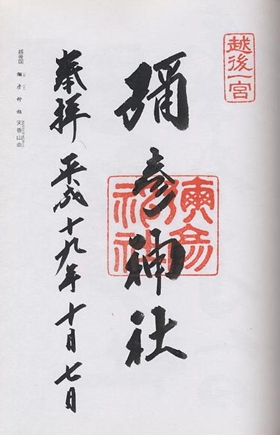 越後一宮
彌彦神社
彌彦神社
奉拝 平成十九年十月七日
越後国 彌彦神社 天香山命